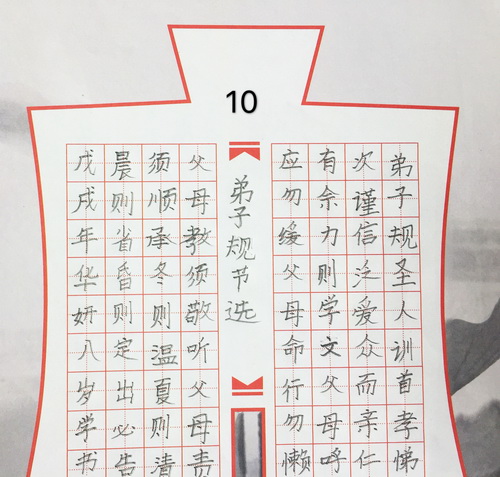 10
弟子规圣人训首孝悌
次谨信泛爱众而亲仁
有余力则学文父母呼
应勿缓父母命行勿懒
弟子规节选
父母教须敬听父母责
须顺承冬则温夏则清
晨则省昏则定出必告
戊戌年华妍八岁学书